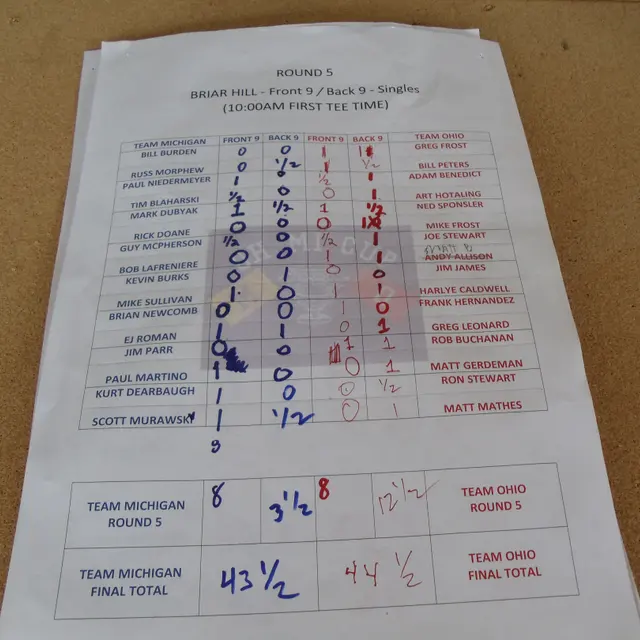 ROUND 5
BRIAR HILL - Front 9 / Back 9 - Singles
(10:00AM FIRST TEE TIME)
TEAM MICHIGAN FRONT 9 BACK 9 FRONT 9 BACK 9 TEAM OHIO
BILL BURDEN 0 0 1 1 GREG FROST
RUSS MORPHEW 0 1/2 1 1/2 BILL PETERS
PAUL NIEDERMEYER 1 0 1/2 1 ADAM BENEDICT
TIM BLAHARSKI 1/2 0 0 1 ART HOTALING
MARK DUBYAK 1 1/2 1 1/2 NED SPONSLER
RICK DOANE 0 0 0 1 MIKE FROST
GUY MCPHERSON 1/2 0 1/2 1 JOE STEWART
BOB LAFRENIERE 0 0 1 1 ANDY ALLISON
KEVIN BURKS 0 1 0 0 JIM JAMES
MIKE SULLIVAN 1 0 1 1 HARLYE CALDWELL
BRIAN NEWCOMB 0 1 1 0 FRANK HERNANDEZ
EJ ROMAN 1 1 0 1 GREG LEONARD
JIM PARR 0 0 1 1 ROB BUCHANAN
PAUL MARTINO 1 0 0 1 MATT GERDEMAN
KURT DEARBAUGH 1 0 0 1/2 RON STEWART
SCOTT MURAWSKY 1 1/2 0 1 MATT MATHES
TEAM MICHIGAN ROUND 5 8 3 1/2 8 12 1/2 TEAM OHIO ROUND 5
TEAM MICHIGAN FINAL TOTAL 43 1/2 44 1/2 TEAM OHIO FINAL TOTAL